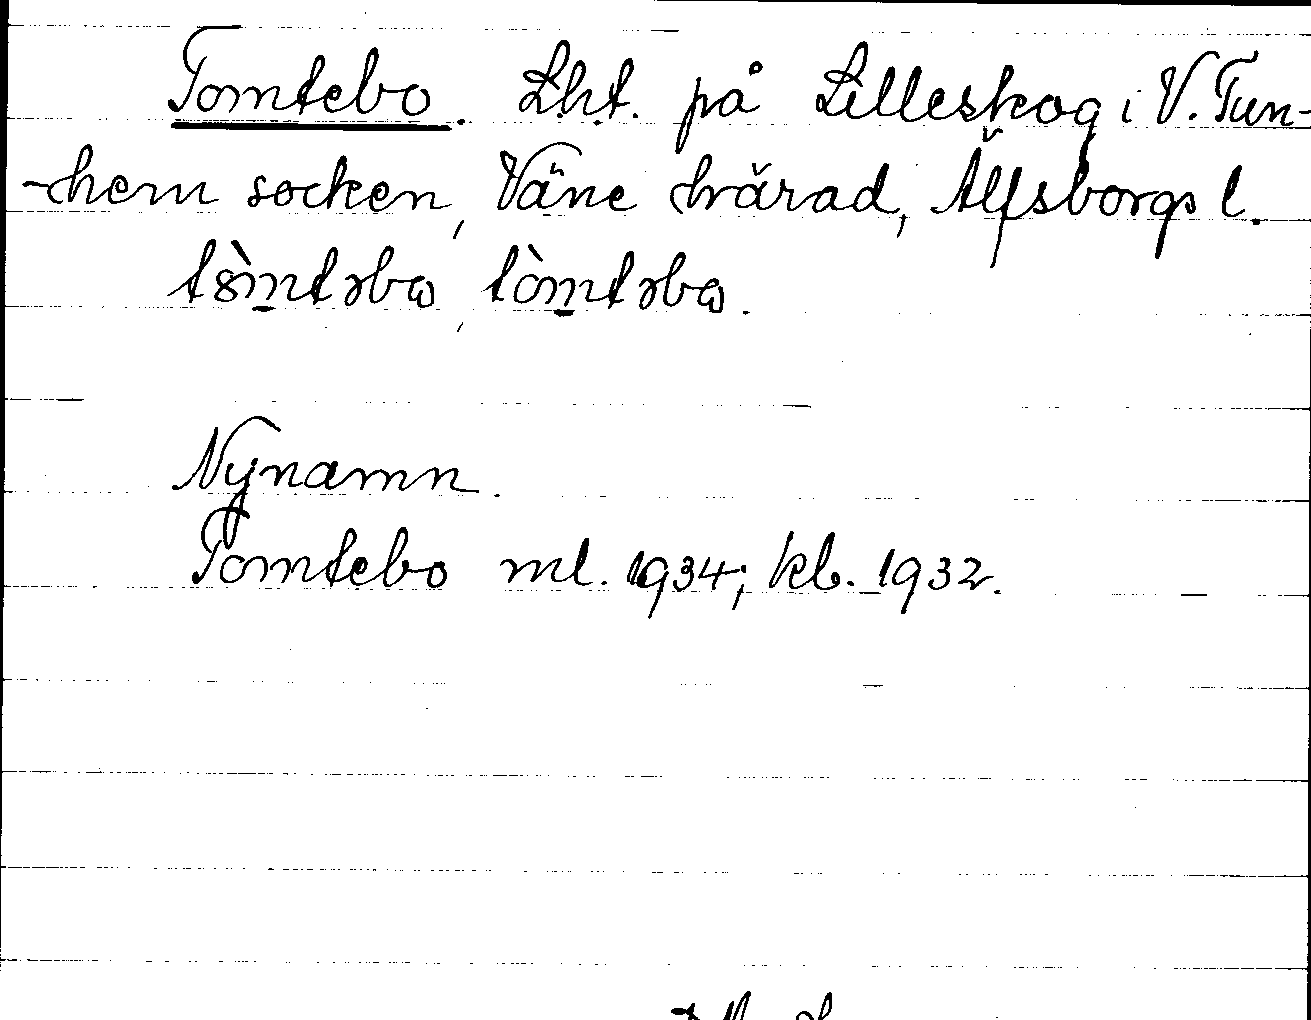 Tomtebo. Lht. på Lilleskog i V. Tun-
-hem socken, Väne härad, Älfsborgs l.
Nynamn.
Tomtebo ml. 1934; kb. 1932.